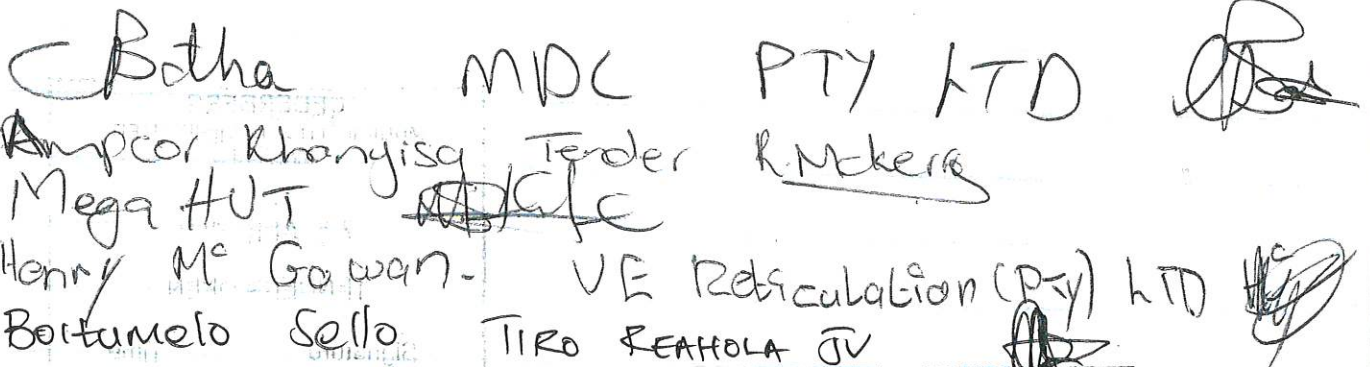 CBotha MDC PTY LTD
Ampcor Khanyisa Tender
Mega HUT
Henry Mc Gowan. VE Reticulation (Pty) LTD
Boitumelo Sello TIRO REAHOLA JV